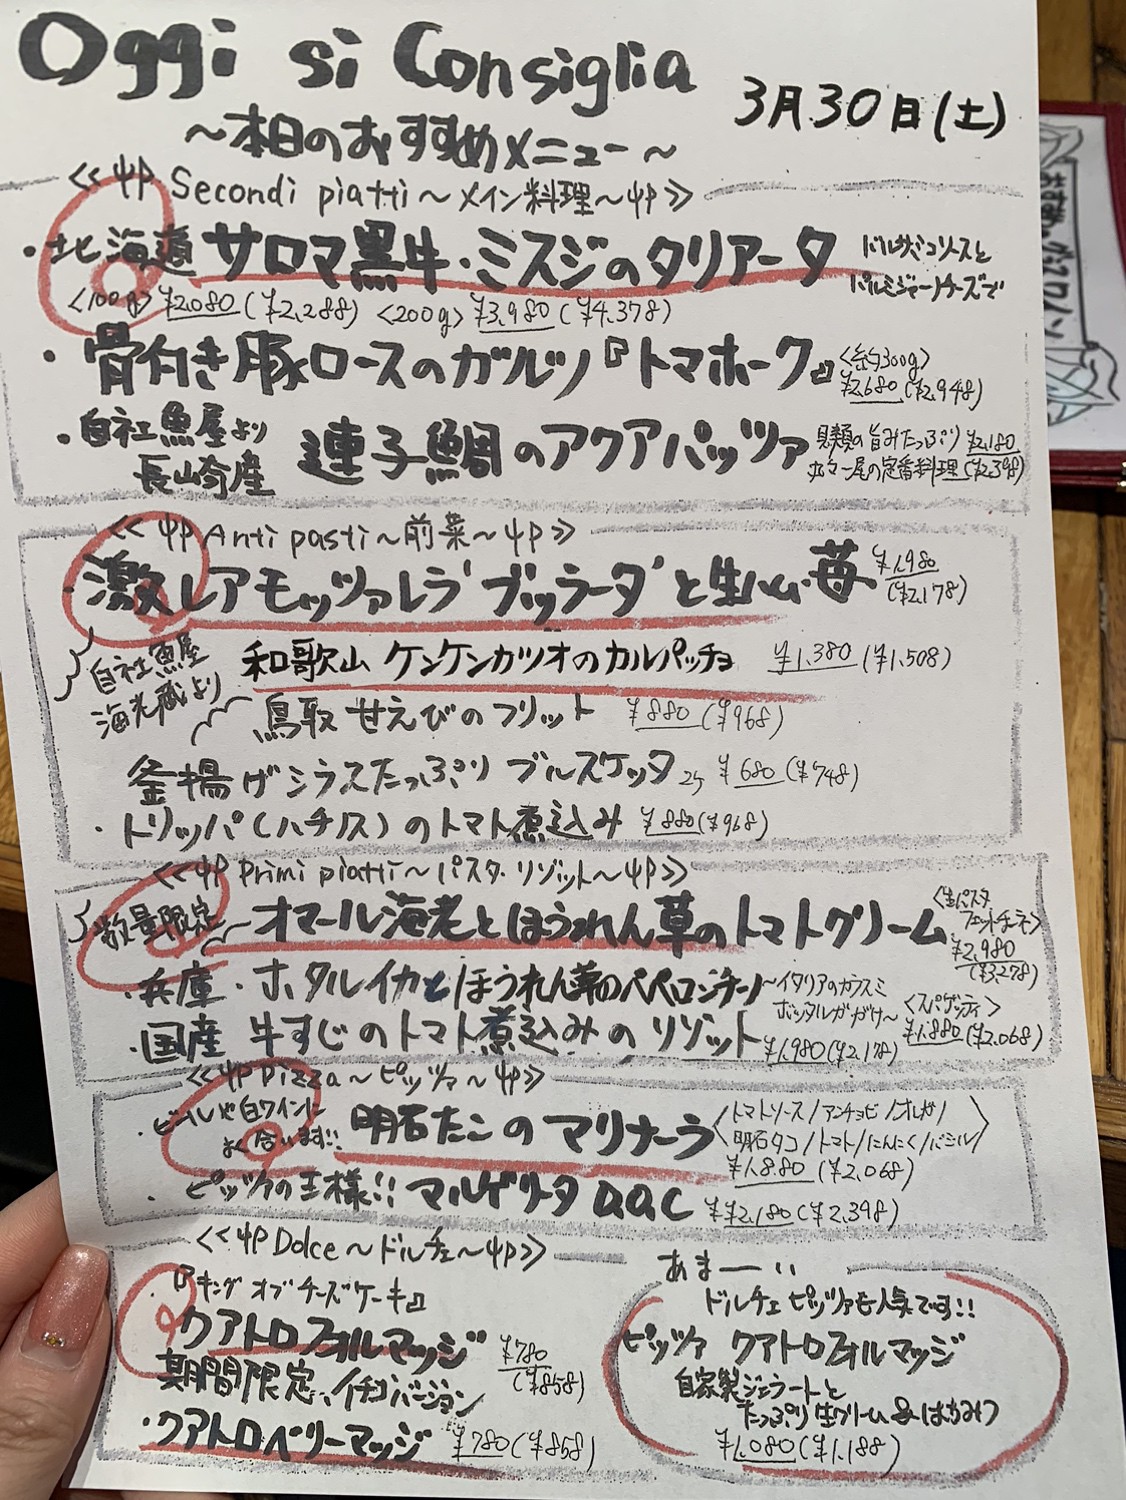 Oggi si Consiglia
3月30日(土)
～本日のおすすめメニュー～
<<Secondi piatti～メイン料理～>>
・北海道 サロマ黒牛・ミスジのタリアータ バルサミコソースと
パルミジャーノチーズで
<100g>¥2,080(¥2,288) <200g>¥3,980(¥4,378)
・骨付き豚ロースのガルツ『トマホーク』<約300g>
¥2,680(¥2,948)
・自社魚屋より 長崎産 連子鯛のアクアパッツァ 貝類の旨みたっぷり ¥2,180
丸々一尾の定番料理(¥2,398)
<<Anti pasti～前菜～>>
・激レアモッツァレラ'ブッラータ'と生ハム、苺 ¥1,980
(¥2,178)
自社魚屋
海光蔵より
和歌山 ケンケンカツオのカルパッチョ ¥1,380(¥1,508)
鳥取 せえびのフリット ¥880(¥968)
釜揚げシラスたっぷり ブルスケッタ 2ヶ ¥680(¥748)
・トリッパ(ハチノス)のトマト煮込み ¥880(¥968)
<<Primi piatti～パスタ・リゾット～>>
数量限定 オマール海老とほうれん草のトマトクリーム <生パスタ
フェットチーネ>
¥2,980
(¥3,278)
・兵庫・ホタルイカとほうれん草のペペロンチーノ ～イタリアのカラスミ
ボッタルガがけ～ <スパゲッティ>
¥1,880(¥2,068)
・国産 牛すじのトマト煮込みのリゾット ¥1,980(¥2,178)
<<Pizza～ピッツァ～>>
・ビールや白ワインに
よく合います!! 明石たこのマリナーラ
トマトソース/アンチョビ/オレガノ/
明石タコ/トマト/にんにく/バジル
¥1,880(¥2,068)
・ピッツァの王様!! マルゲリータD.O.C ¥¥2,180(¥2,398)
<<Dolce～ドルチェ～>>
『キング オブ チーズケーキ』
クアトロフォルマッジ ¥780
(¥858)
期間限定、イチゴバージョン
・クアトロベリーマッジ ¥780(¥858)
あまーーい
ドルチェ ピッツァも人気です!!
ピッツァ クアトロフォルマッジ
自家製ジェラートと
たっぷり生クリーム&はちみつ
¥1,080(¥1,188)